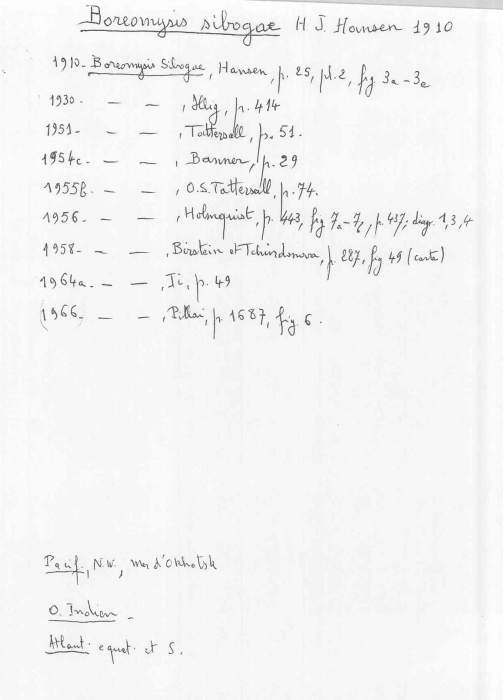 Boreomysis sibogae H J. Hansen 1910
1910. Boreomysis Sibogae, Hansen, p. 25, pl. 2, fig 3a-3e
1930. — — , Illig, p. 414
1951. — — , Tattersall, p. 51.
1954c. — — , Banner, p. 29
1955b. — — , O.S. Tattersall, p. 74.
1956. — — , Holmquist, p. 443, fig 7a-7b, p. 437; diagr. 1, 3, 4
1958. — — , Birstein et Tchindonova, p. 287, fig 49 (carte)
1964a. — — , Ii, p. 49
(1966. — — , Pillai, p. 1687, fig. 6.
Pacif, N.W., mer d'Okhotsk
O. Indien -
Atlant. equat. et S.